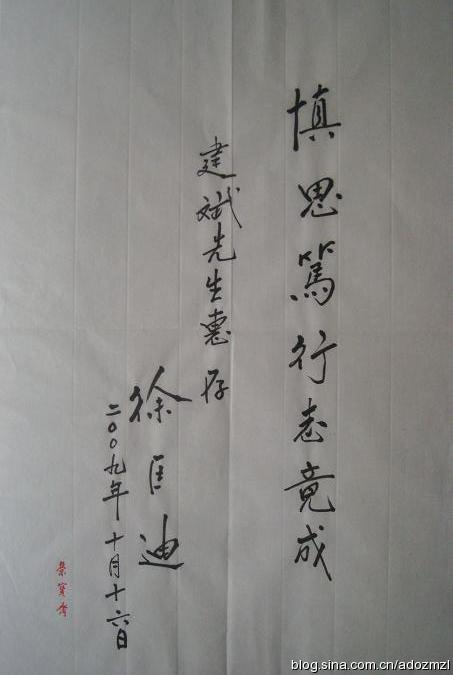 慎思笃行志竟成
建斌先生惠存
徐匡迪
二00九年十月十六日
荣宝斋
blog.sina.com.cn/adozmzl